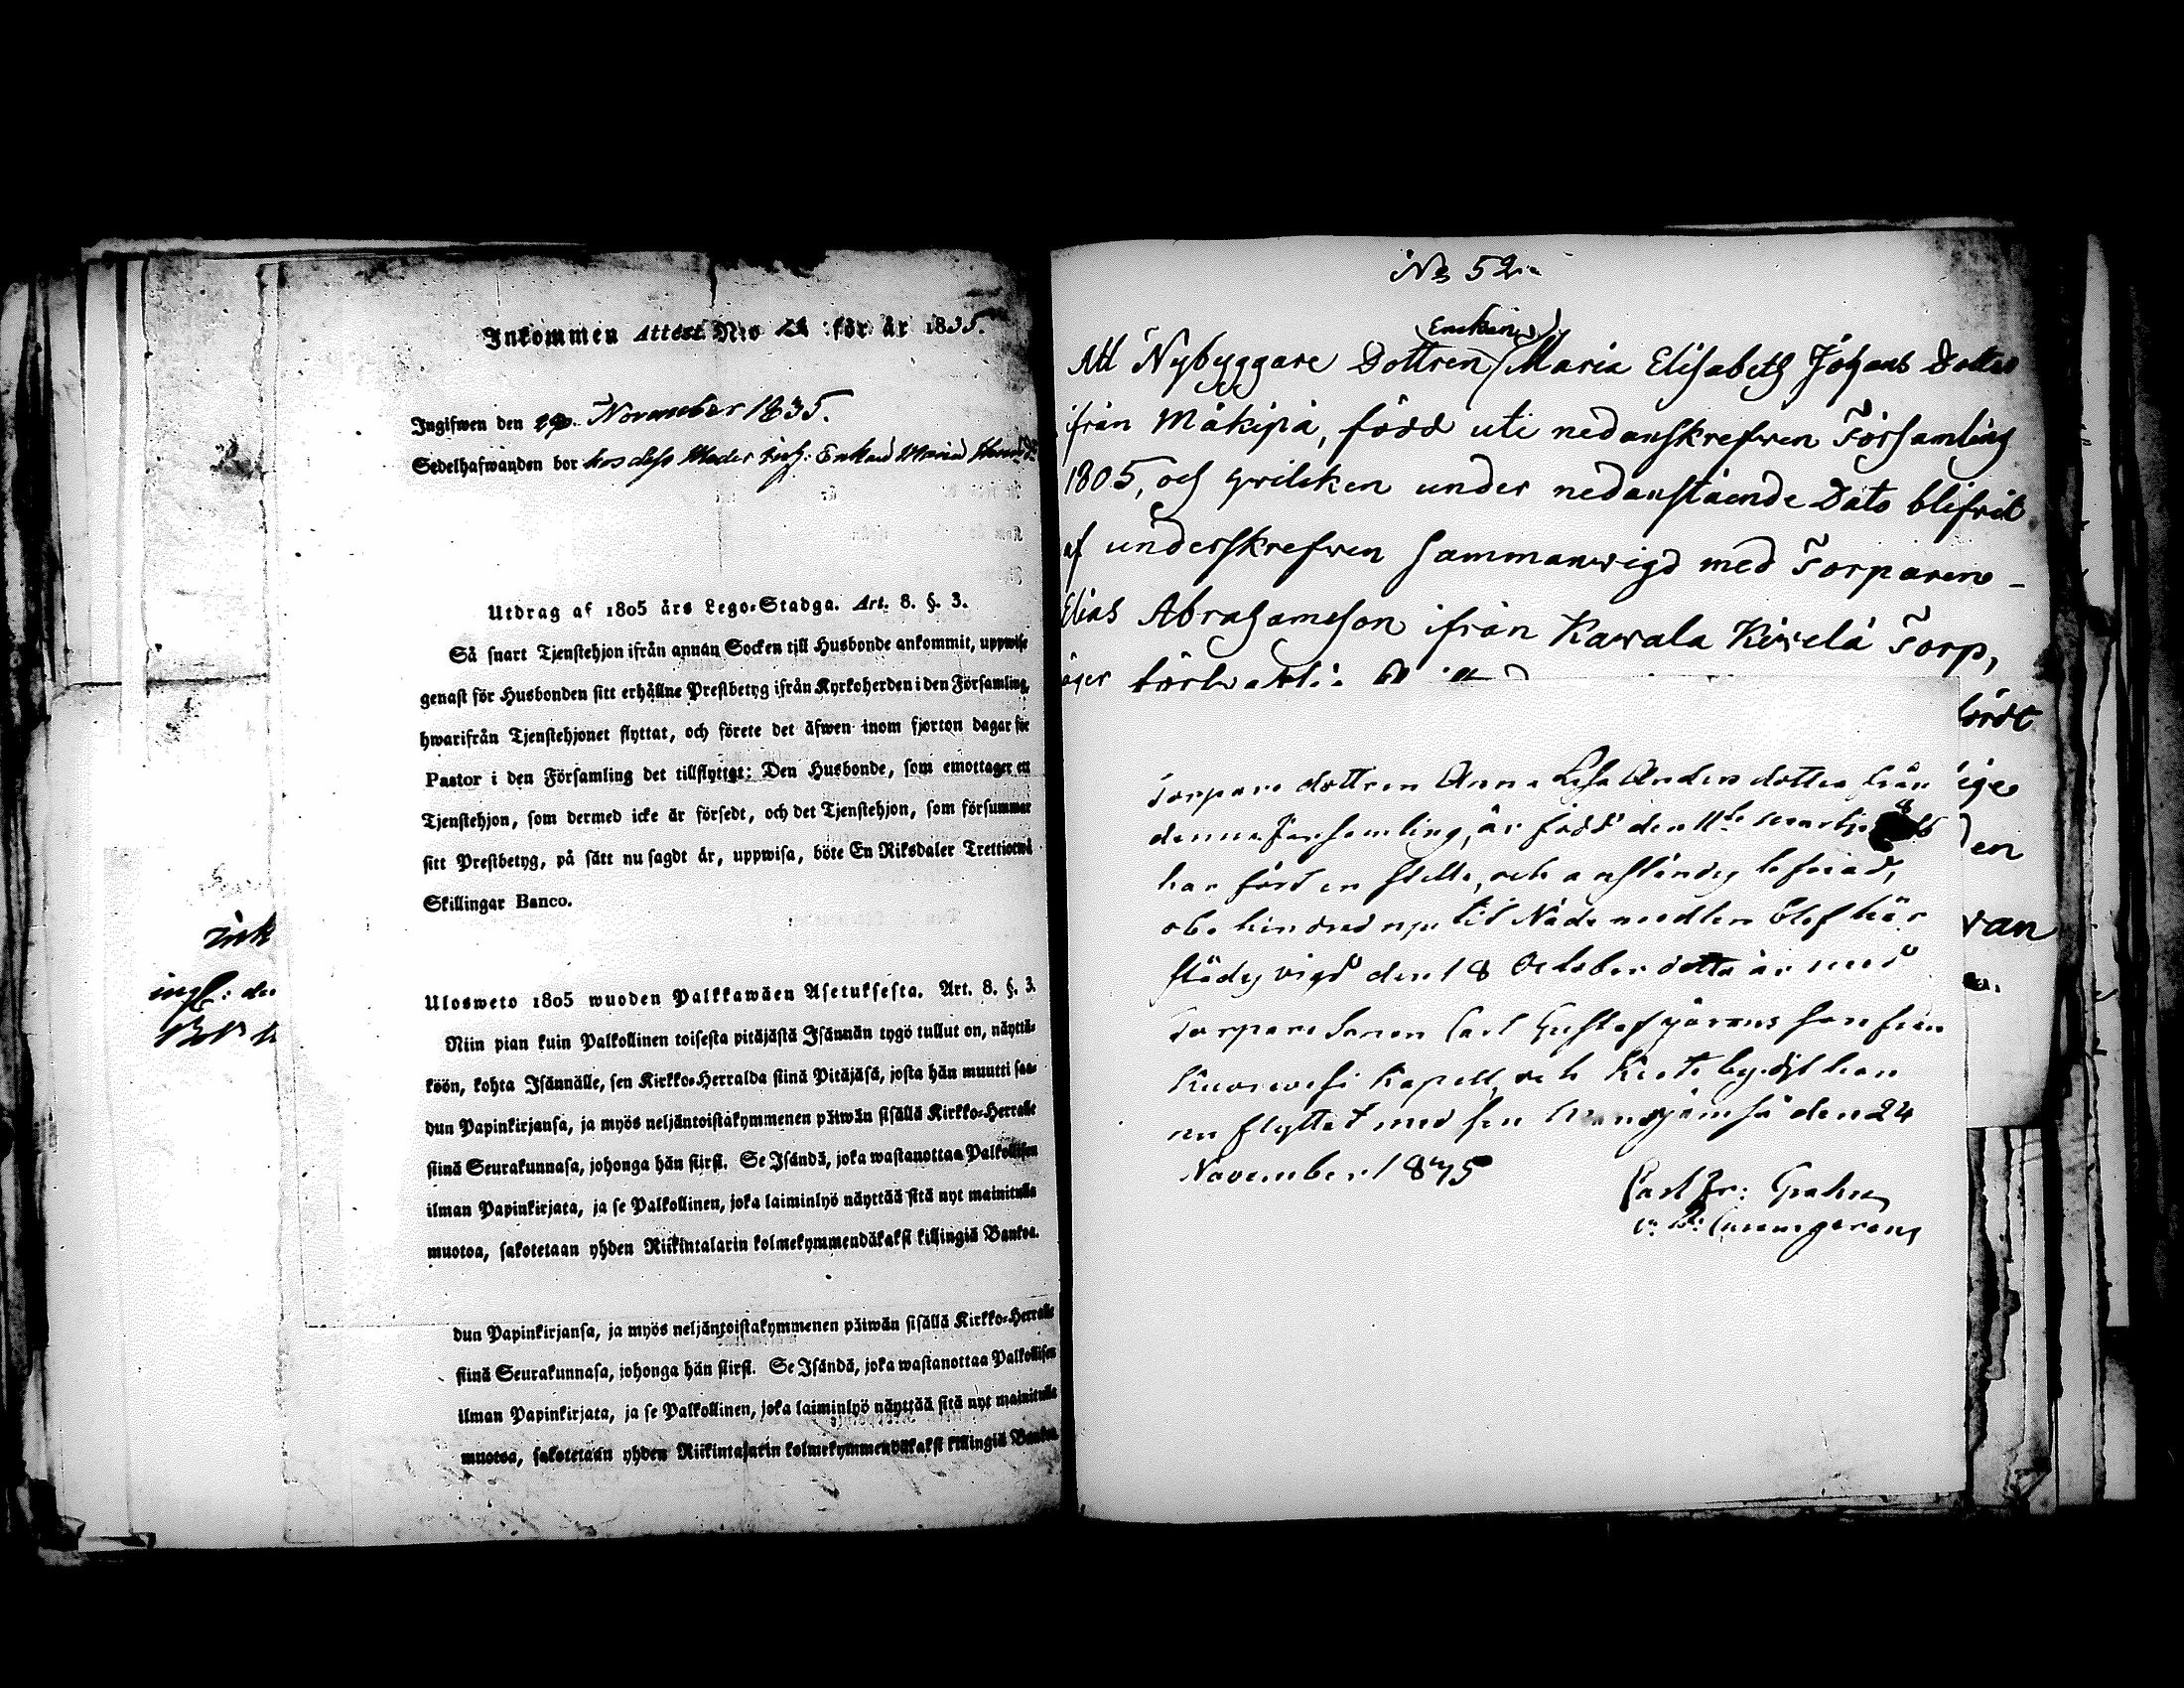 Inkommen Attest N:o för år 1835.
Ingifwen den November 1835.
Sedelhafwanden bor hos dess Moder Enkan Maria
Utdrag af 1805 års Lego-Stadga. Art. 8. §. 3.
Så snart Tjenstehjon ifrån annan Socken till Husbonde ankommit, uppwise
genast för Husbonden sitt erhållne Prestbetyg ifrån Kyrkoherden i den Församling,
hwarifrån Tjenstehjonet flyttat, och förete det äfwen inom fjorton dagar för
Pastor i den Församling det tillflyttgt: Den Husbonde, som emottager ett
Tjenstehjon, som dermed icke är försedt, och det Tjenstehjon, som försummar
sitt Prestbetyg, på sätt nu sagdt är, uppwisa, böte En Riksdaler Trettiotwå
Skillingar Banco.
Ulosweto 1805 wuoden Palkkawäen Asetuksesta. Art. 8. §. 3.
Niin pian kuin Palkollinen toisesta pitäjästä Isännän tygö tullut on, näyttä-
köön, kohta Isännälle, sen Kirkko-Herralda siinä Pitäjäsä, josta hän muutti saa-
dun Papinkirjansa, ja myös neljäntoistakymmenen päiwän sisällä Kirkko-Herralle
siinä Seurakunnasa, johonga hän siirsi. Se Isändä, joka wastanottaa Palkollisen
ilman Papinkirjata, ja se Palkollinen, joka laiminlyö näyttää sitä nyt mainitulla
muotoa, sakotetaan yhden Riikintalarin kolmekymmendäkaksi killingiä Bankoa.
dun Papinkirjansa, ja myös neljäntoistakymmenen päiwän sisällä Kirkko-Herralle
siinä Seurakunnasa, johonga hän siirsi. Se Isändä, joka wastanottaa Palkollisen
ilman Papinkirjata, ja se Palkollinen, joka laiminlyö näyttää sitä nyt mainitulla
muotoa, sakotetaan yhden Riikintalarin kolmekymmendäkaksi killingiä Bankoa
N:o 52
Enckan
Att Nybyggare Dottren Maria Elisabeth Johans Dotter
ifrån Mäkipä, född uti nedanskrefven Församling
1805, och hvilcken under nedanstående Dato blifvit
af underskrefven sammanvigd med Torparen
Elias Abrahamsson ifrån Kavala Kivelä Torp,
äger
fördt
en
van
Torpare dottren Anna Lisa Anders dotter från
denna Församling, är född den 11te Martji
har fört en stilla, och anständig lefnad,
obehindrad njutit Nådemedlen blef här
städes vigd den 18 October detta år med
Torpare Sonen Carl Gustaf Görans son från
Kuorevesi Kapell, och
nu flyttat med sen jämsä den 24
November 1835
Carl Fr: Grahn